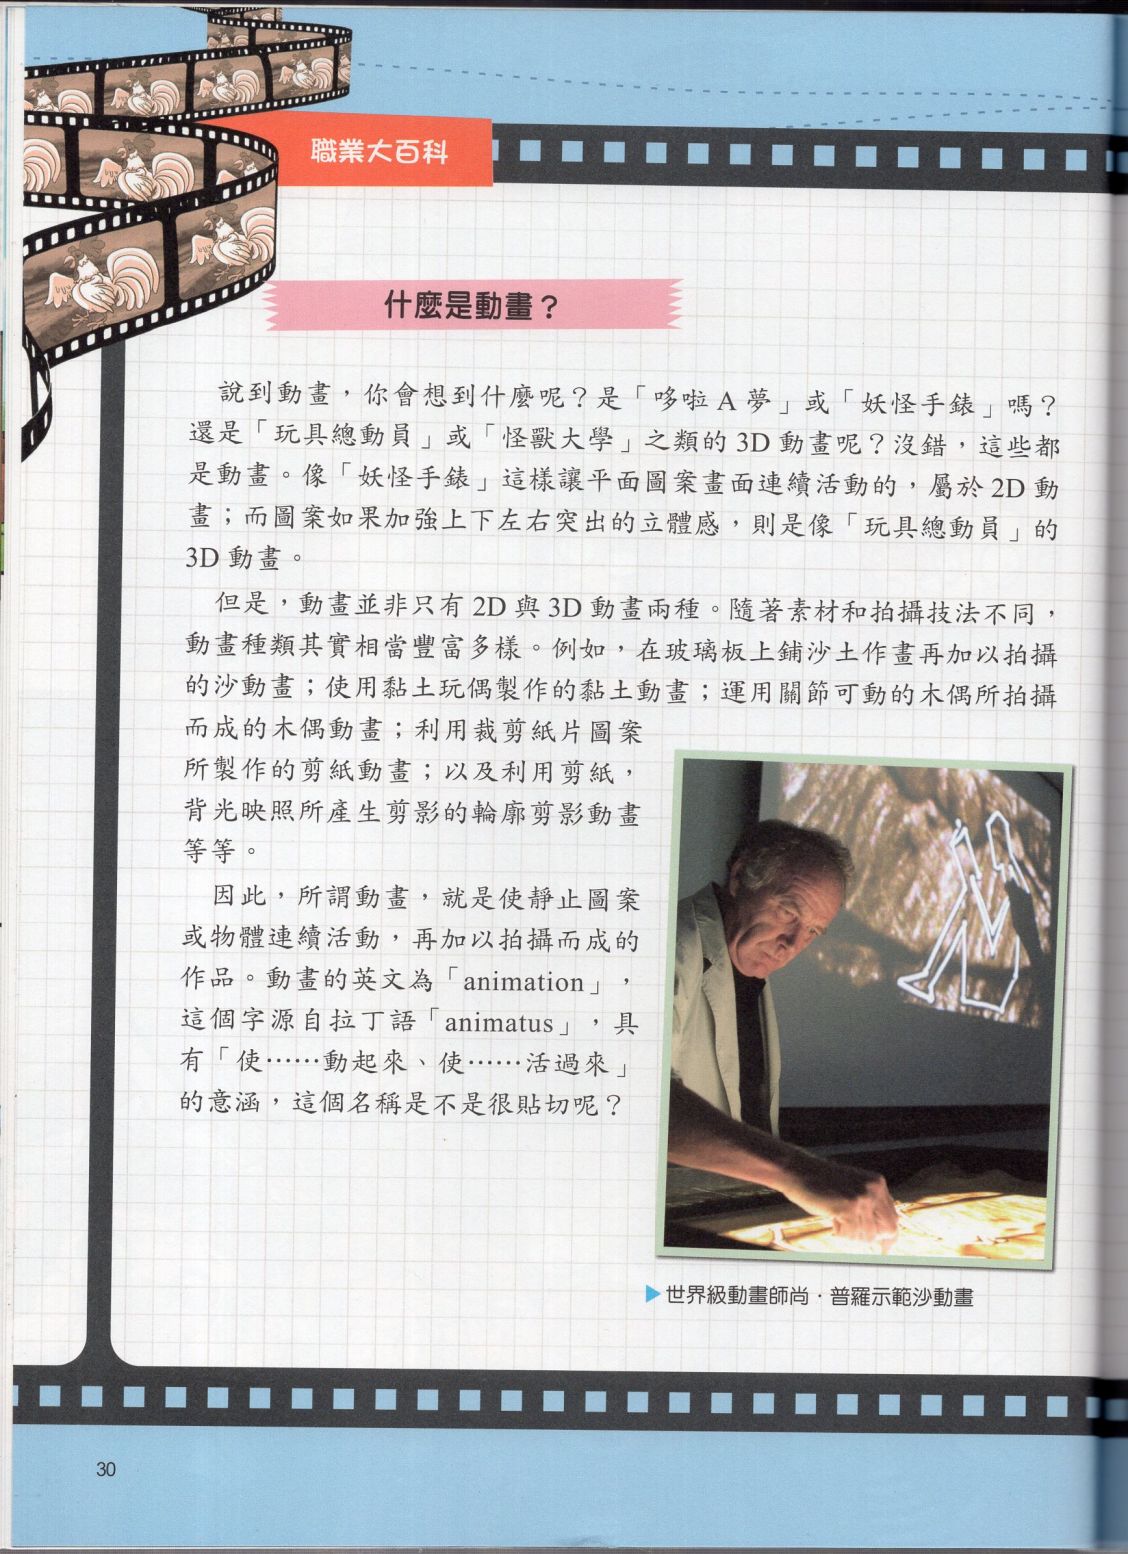 職業大百科
什麼是動畫？
說到動畫，你會想到什麼呢？是「哆啦 A 夢」或「妖怪手錶」嗎？
還是「玩具總動員」或「怪獸大學」之類的 3D 動畫呢？沒錯，這些都
是動畫。像「妖怪手錶」這樣讓平面圖案畫面連續活動的，屬於 2D 動
畫；而圖案如果加強上下左右突出的立體感，則是像「玩具總動員」的
3D 動畫。
但是，動畫並非只有 2D 與 3D 動畫兩種。隨著素材和拍攝技法不同，
動畫種類其實相當豐富多樣。例如，在玻璃板上鋪沙土作畫再加以拍攝
的沙動畫；使用黏土玩偶製作的黏土動畫；運用關節可動的木偶所拍攝
而成的木偶動畫；利用裁剪紙片圖案
所製作的剪紙動畫；以及利用剪紙，
背光映照所產生剪影的輪廓剪影動畫
等等。
因此，所謂動畫，就是使靜止圖案
或物體連續活動，再加以拍攝而成的
作品。動畫的英文為「animation」，
這個字源自拉丁語「animatus」，具
有「使……動起來、使……活過來」
的意涵，這個名稱是不是很貼切呢？
▶世界級動畫師尚·普羅示範沙動畫
30